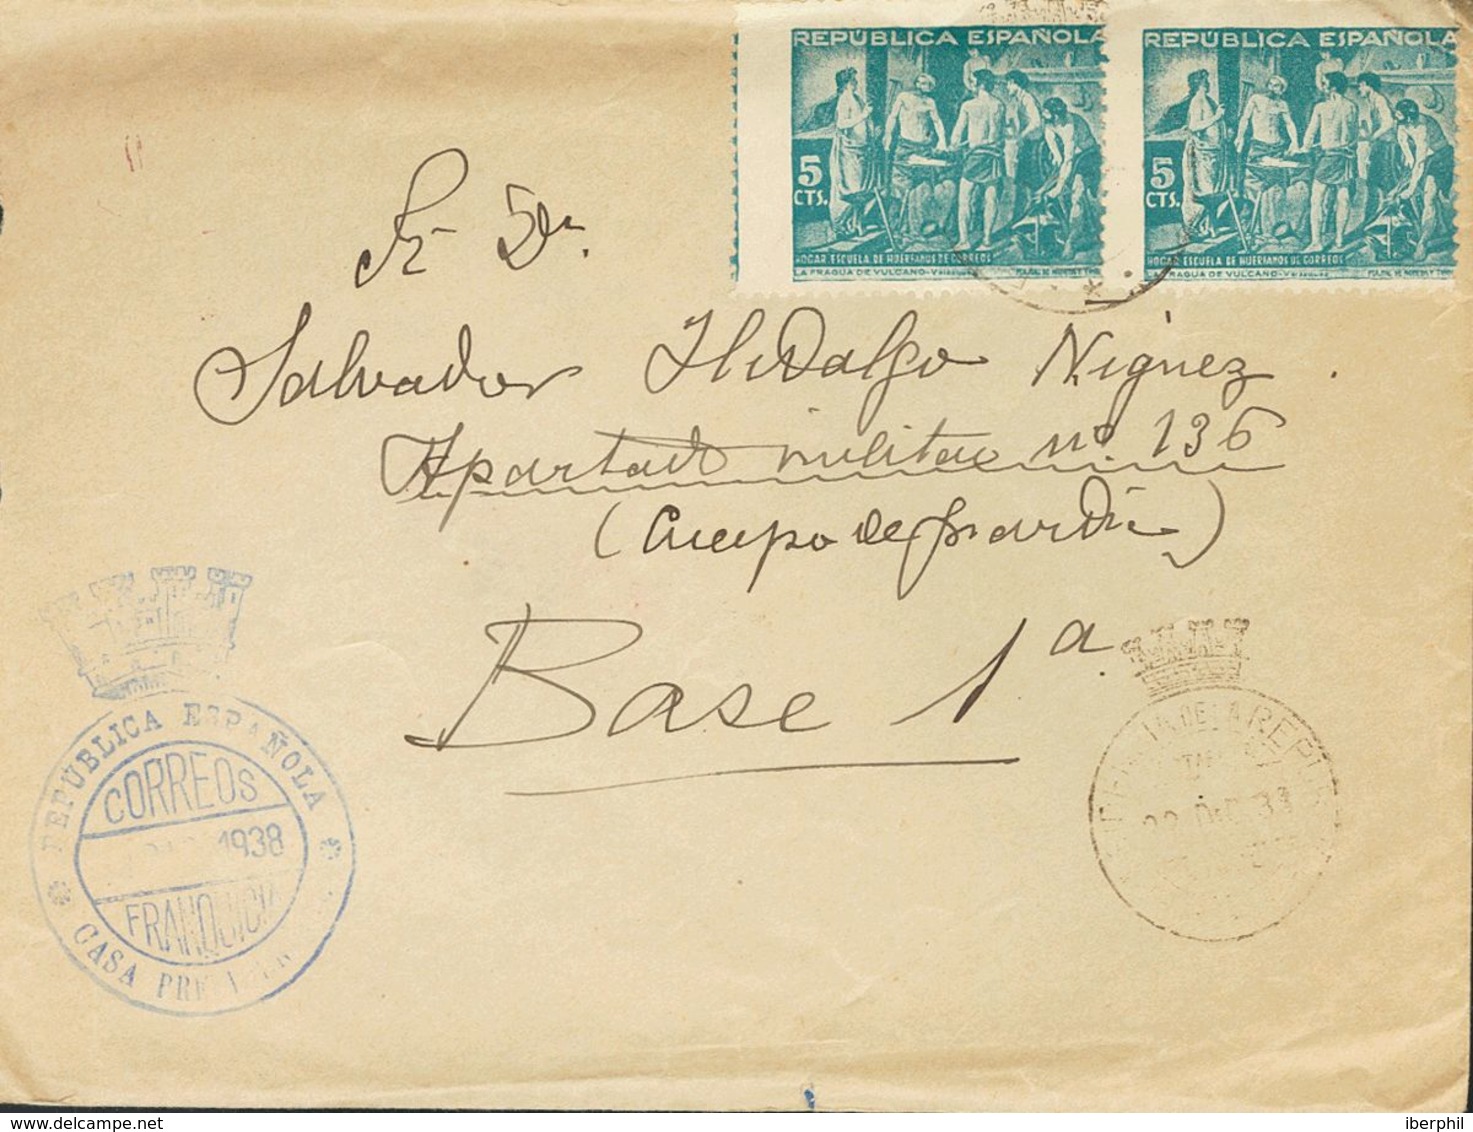 REPÚBLICA ESPAÑOLA
5
CTS.
HOGAR ESCUELA DE HUERFANOS DE CORREOS
LA FRAGUA DE VULCANO-VELAZQUEZ
REPÚBLICA ESPAÑOLA
5
CTS.
HOGAR ESCUELA DE HUERFANOS DE CORREOS
FRAGUA DE VULCANO-VELAZQUEZ
Sr Dn.
Salvador Hidalgo Niguez.
Apartado militar nº. 136
(Cuerpo de guardia)
Base 1ª
REPÚBLICA ESPAÑOLA
CORREOS
1938
FRANQUICIA
CASA
DE LA REPUB
22 DIC 38
iberphil